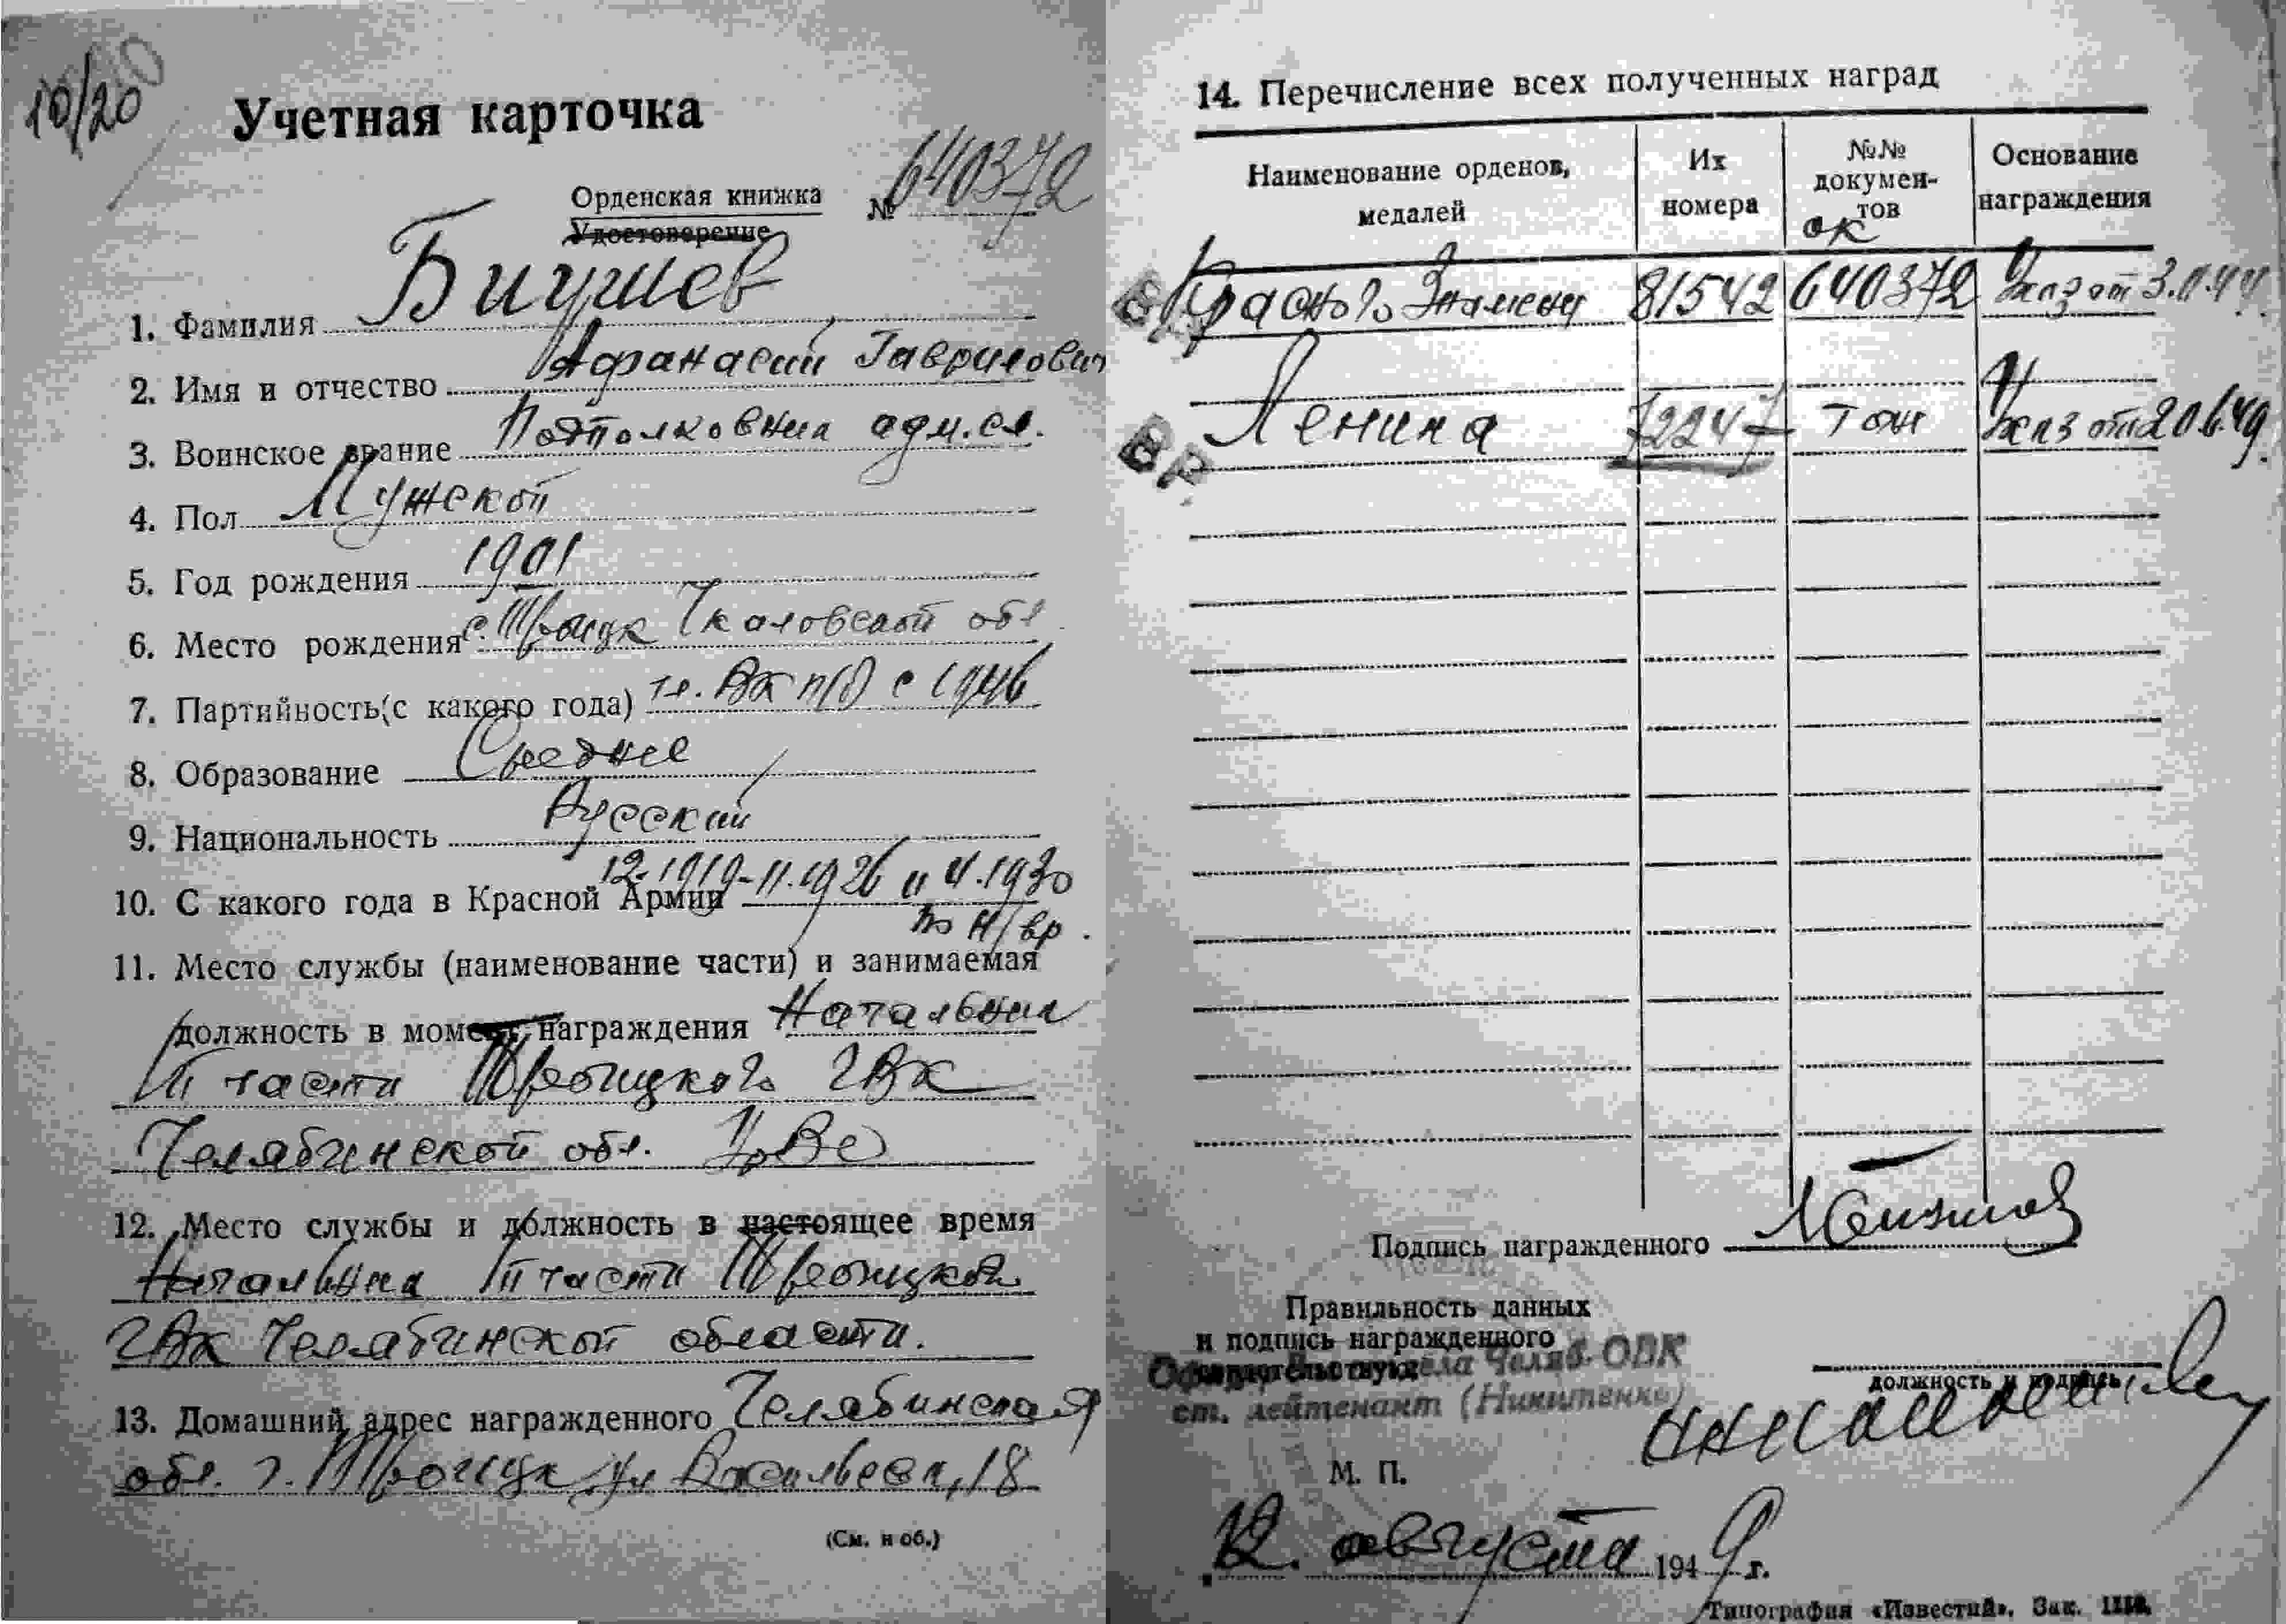 10/20
Учетная карточка
Орденская книжка
Удостоверение
№ 640372
1. Фамилия Бишшев
2. Имя и отчество Афанасий Гаврилович
3. Воинское звание Подполковник адм.сл.
4. Пол Мужской
5. Год рождения 1901
6. Место рождения с. Троицк Чкаловской обл
7. Партийность (с какого года) чл. ВКП(б) с 1946
8. Образование Среднее
9. Национальность Русский
10. С какого года в Красной Армии 12.1919-11.1926 и 4.1930
по н/вр.
11. Место службы (наименование части) и занимаемая
должность в момент награждения Начальник
III части Троицкого ГВК
Челябинской обл. УрВО
12. Место службы и должность в настоящее время
Начальник III части Троицкого
ГВК Челябинской области.
13. Домашний адрес награжденного Челябинская
обл. г. Троицк, ул Васильева, 18
(См. н об.)
14. Перечисление всех полученных наград
Наименование орденов, медалей
Их номера
№№ документов
ОК
Основание награждения
Красного Знамени 81542 640372 Указ от 3.11.44.
Ленина 72247 Тож Указ от 20.6.49.
ВР
Подпись награжденного
Правильность данных
и подпись награжденного
свидетельствую
Челяб. ОВК
ст. лейтенант (Никитенко)
должность и подпись
М. П.
12. августа 1949 г.
Типография «Известий». Зак.